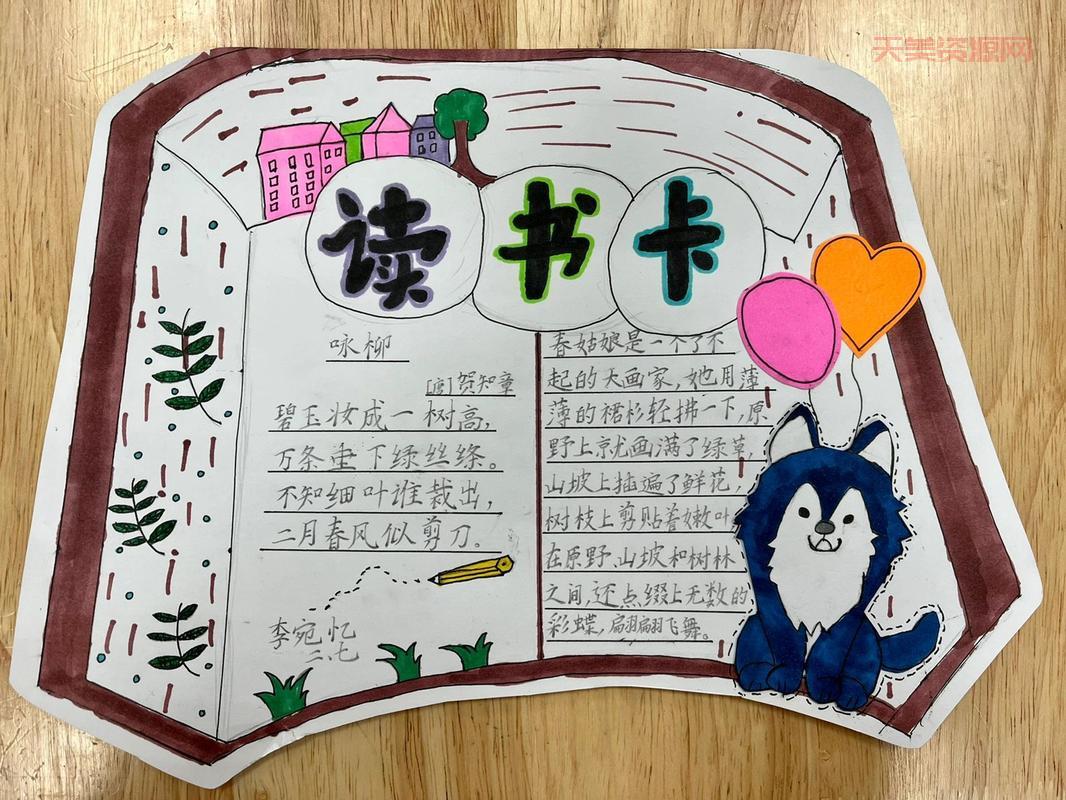 天美资源网
读书卡
咏柳
[唐]贺知章
碧玉妆成一树高,
万条垂下绿丝绦。
不知细叶谁裁出,
二月春风似剪刀。
李宛忆
二、七
春姑娘是一个了不
起的大画家,她用薄
薄的裙衫轻拂一下,原
野上就画满了绿草,
山坡上插遍了鲜花,
树枝上剪贴着嫩叶
在原野、山坡和树林
之间,还点缀上无数的
彩蝶,翩翩飞舞。